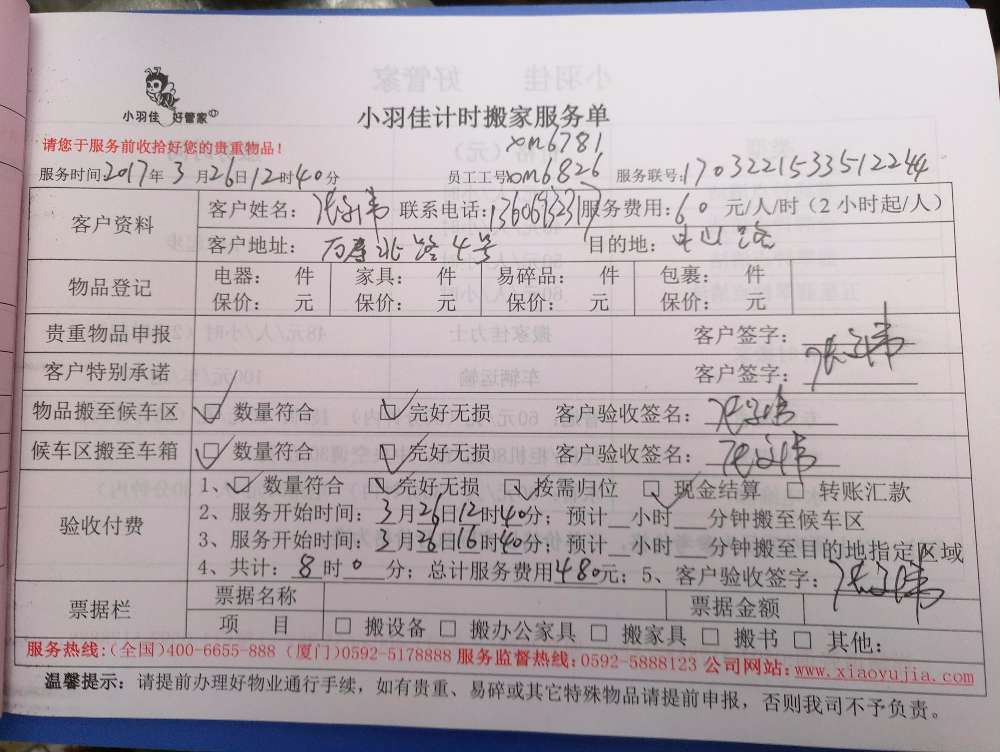 小羽佳 好管家
小羽佳计时搬家服务单
请您于服务前收拾好您的贵重物品！
xm6781
服务时间:2017年3月26日12时40分 员工工号:xm6826 服务联号:1703221533512244
客户资料 客户姓名： 联系电话: 服务费用:60 元/人/时（2小时起/人）
客户地址： 4号 目的地：
物品登记 电器： 件 家具： 件 易碎品： 件 包裹： 件
保价： 元 保价： 元 保价： 元 保价： 元
贵重物品申报 客户签字：
客户特别承诺 客户签字：
物品搬至候车区 数量符合 完好无损 客户验收签名：
候车区搬至车箱 数量符合 完好无损 客户验收签名：
验收付费 1、数量符合 完好无损 按需归位 现金结算 转账汇款
2、服务开始时间：3月26日12时40分；预计__小时___分钟搬至候车区
3、服务开始时间：3月26日16时40分；预计__小时___分钟搬至目的地指定区域
4、共计：8时0分；总计服务费用480元；5、客户验收签字：
票据栏 票据名称 票据金额
项 目 搬设备 搬办公家具 搬家具 搬书 其他：
服务热线:(全国)400-6655-888 (厦门)0592-5178888 服务监督热线:0592-5888123 公司网站:www.xiaoyujia.com
温馨提示：请提前办理好物业通行手续，如有贵重、易碎或其它特殊物品请提前申报，否则我司不予负责。